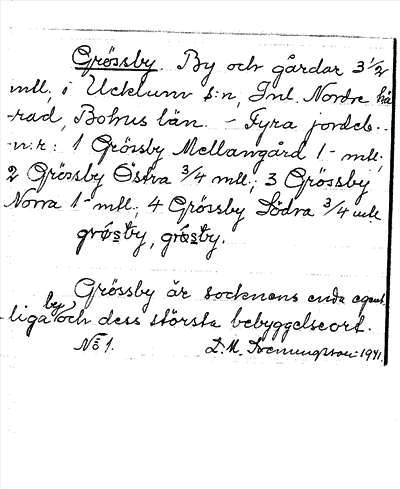 Grössby. By och gårdar 3 1/2
mtl. i Ucklum s:n, Inl. Nordre hä
-rad, Bohus län. - Fyra jordeb.-
-n:r: 1 Grössby Mellangård 1- mtl.;
2 Grössby Östra 3/4 mtl.; 3 Grössby
Norra 1- mtl.; 4 Grössby Södra 3/4 mtl.
grøsby, grøsby.
Grössby är socknens enda egent-
liga by och dess största bebyggelseort.
No 1. D.M. 1941.